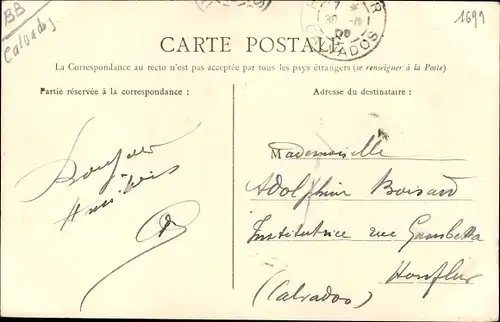 BB
Calvados
1699
CALVADOS
CARTE POSTALE
La Correspondance au recto n'est pas acceptée par tous les pays étrangers (se renseigner à la Poste)
Partie réservée à la correspondance :
Adresse du destinataire :
Bonjour
Mademoiselle
Adolphine Boisard
Institutrice rue Gambetta
Honfleur
(Calvados)